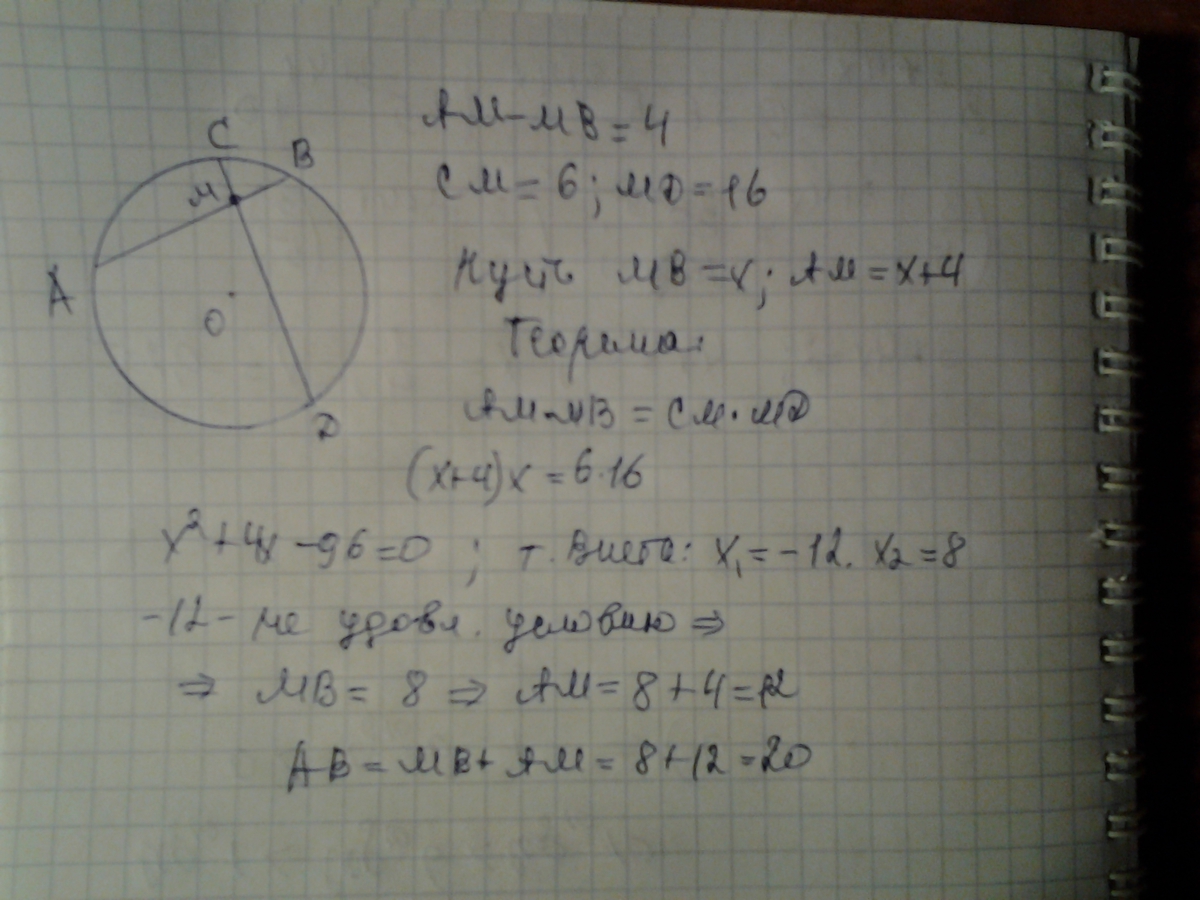 AM-MB=4
C
B
CM=6; MD=16
M
A
Пусть MB=x; AM=x+4
O
Теорема:
AM·MB=CM·MD
D
(x+4)x=6·16
x²+4x-96=0; т. Виета: x₁=-12. x₂=8
-12- не удовл. условию ⇒
⇒ MB= 8 ⇒ AM=8+4=12
AB=MB+AM=8+12=20